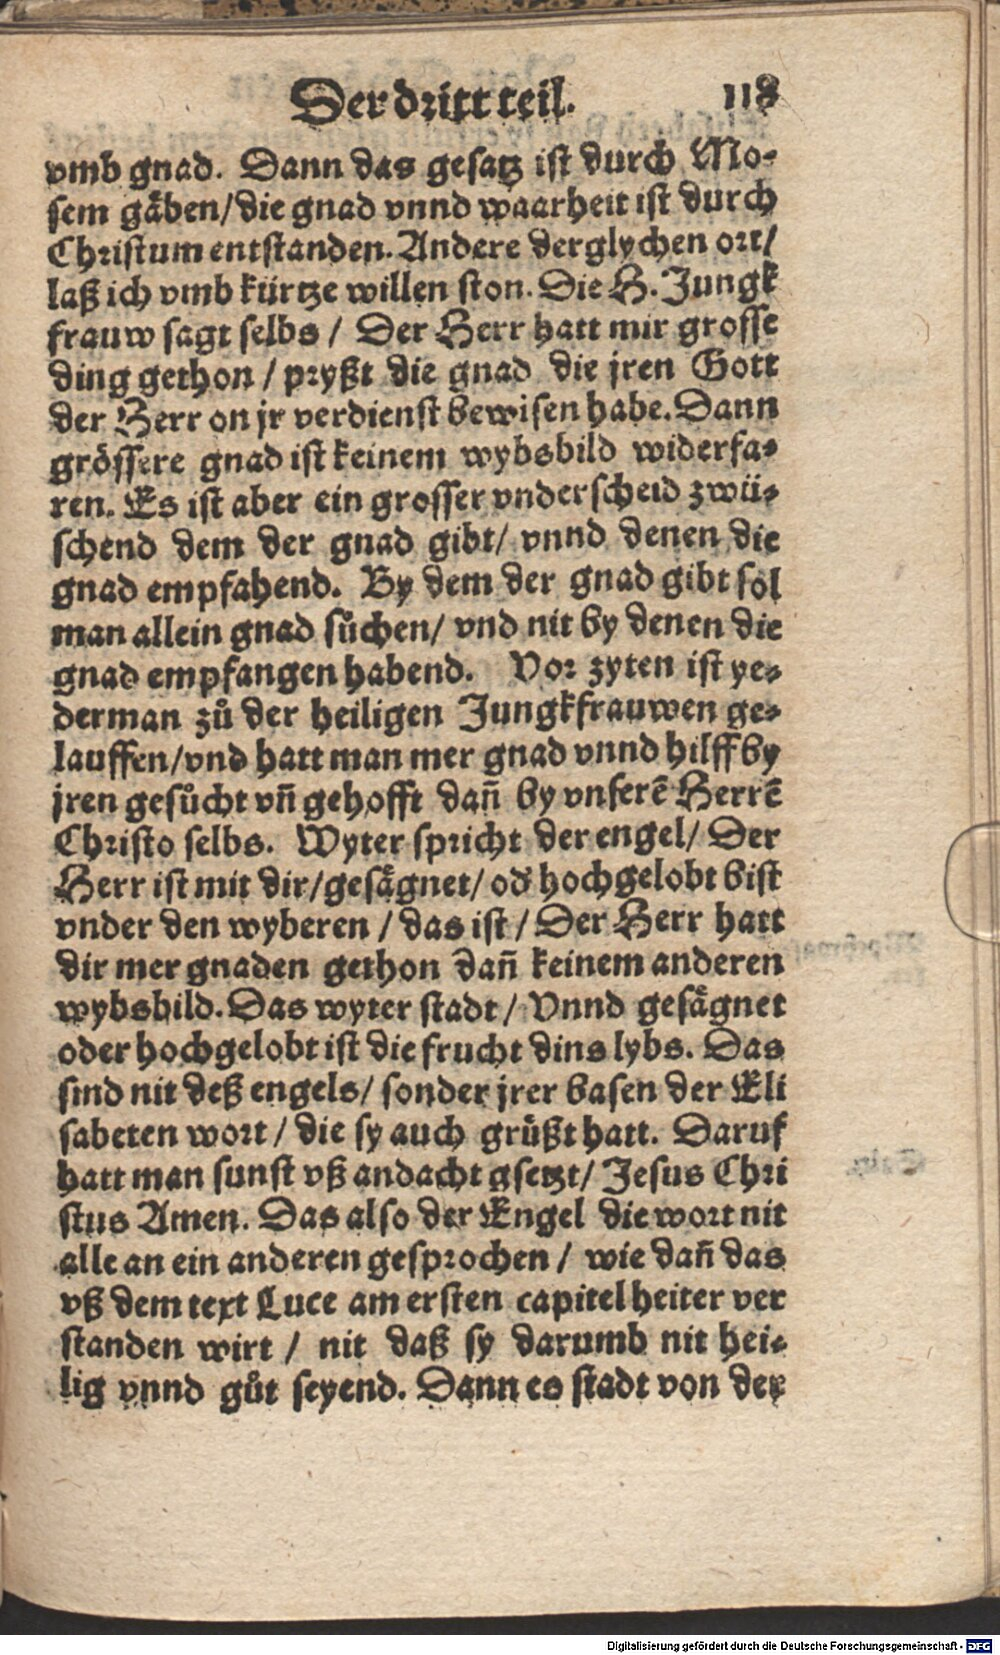 Der dritt teil. 118
vmb gnad. Dann das gesatz ist durch Mo-
sem gäben/ die gnad vnnd waarheit ist durch
Christum entstanden. Andere derglychen ort/
laß ich vmb kürtze willen ston. Die H. Jungk
frauw sagt selbs / Der Herr hatt mir grosse
ding gethon / pryßt die gnad die jren Gott
der Herr on jr verdienst bewisen habe. Dann
grössere gnad ist keinem wybsbild widerfa-
ren. Es ist aber ein grosser vnderscheid zwü-
schend dem der gnad gibt/ vnnd denen die
gnad empfahend. By dem der gnad gibt sol
man allein gnad sůchen/ vnd nit by denen die
gnad empfangen habend. Vor zyten ist ye-
derman zů der heiligen Jungkfrauwen ge-
lauffen/ vnd hatt man mer gnad vnnd hilff by
jren gesůcht vñ gehofft dañ by vnserē Herrē
Christo selbs. Wyter spricht der engel/ Der
Herr ist mit dir/ gesägnet/ od' hochgelobt bist
vnder den wyberen / das ist / Der Herr hatt
dir mer gnaden gethon dañ keinem anderen
wybsbild. Das wyter stadt / Vnnd gesägnet
oder hochgelobt ist die frucht dins lybs. Das
sind nit deß engels/ sonder jrer basen der Eli
sabeten wort / die sy auch grüßt hatt. Daruf
hatt man sunst vß andacht gsetzt/ Jesus Chri
stus Amen. Das also der Engel die wort nit
alle an ein anderen gesprochen / wie dañ das
vß dem text Luce am ersten capitel heiter ver
standen wirt / nit daß sy darumb nit hei-
lig vnnd gůt seyend. Dann es stadt von der
Digitalisierung gefördert durch die Deutsche Forschungsgemeinschaft - DFG